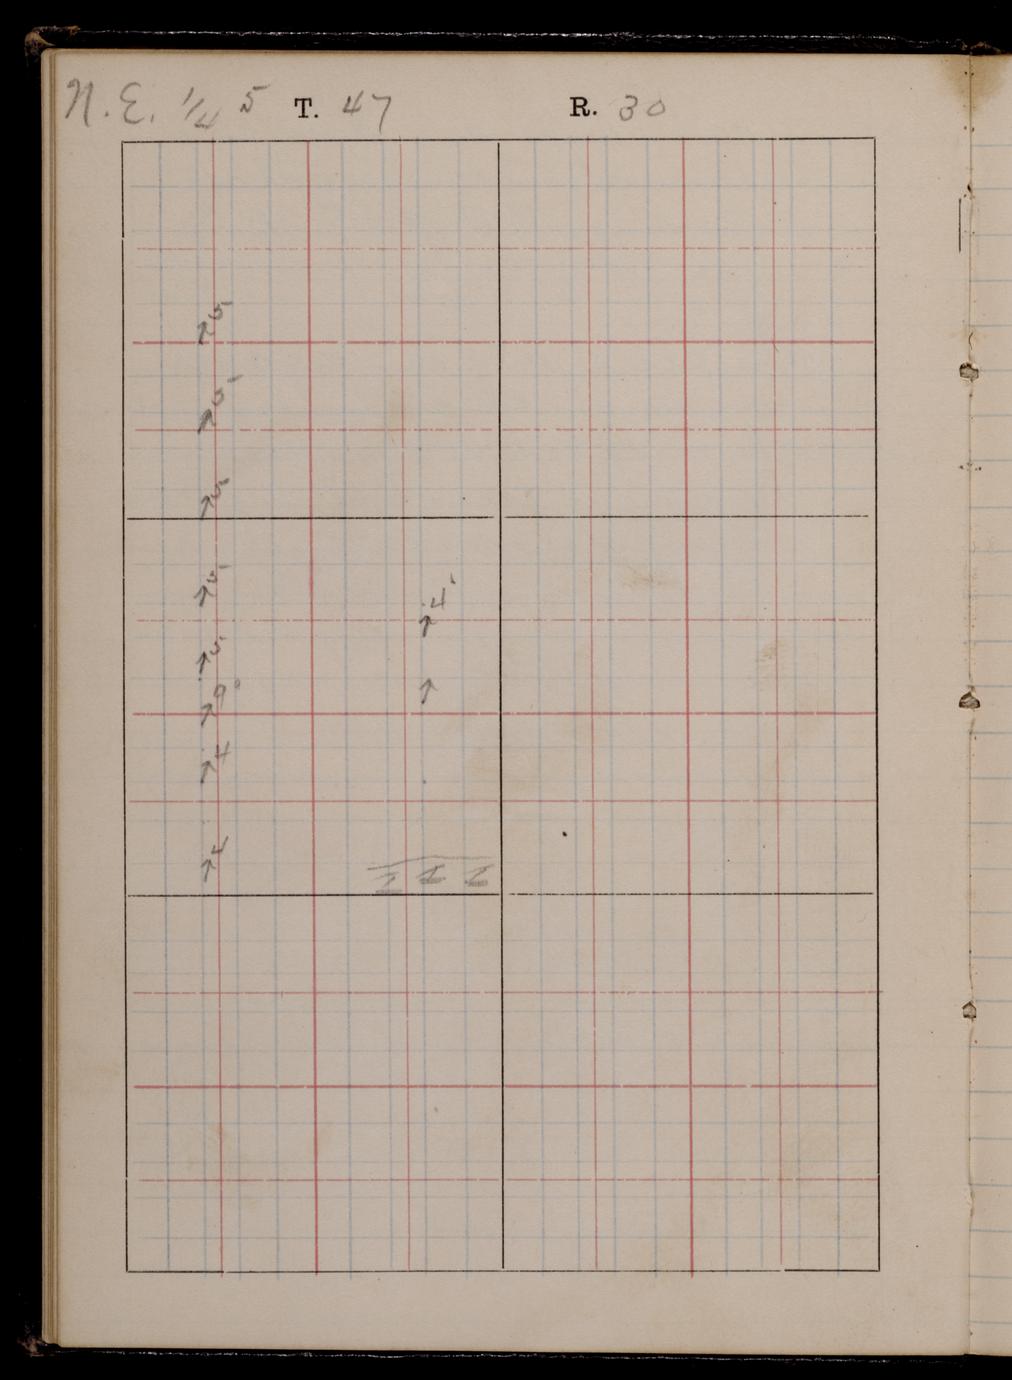 N.E. 1/4 5 T. 47 R. 30
5
5
5
5
4'
5
9°
4
4